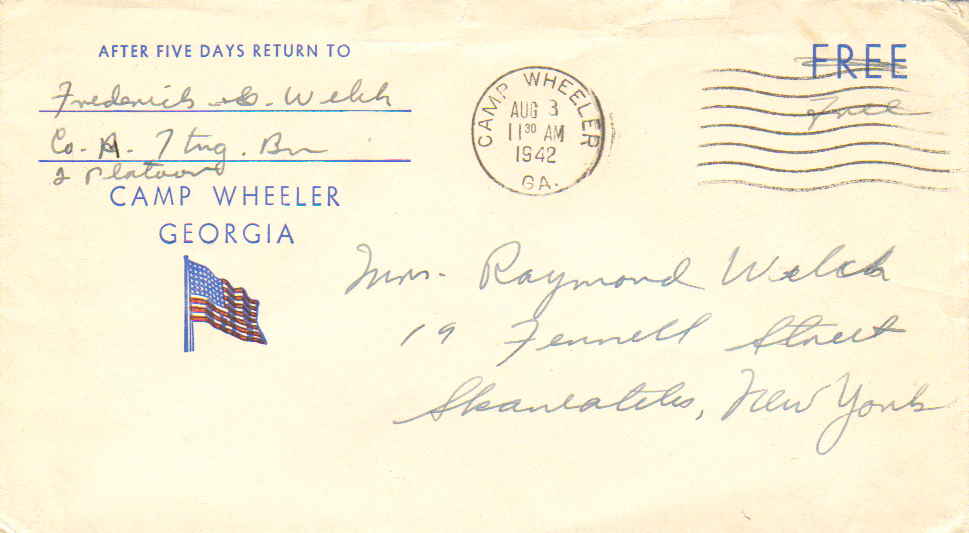 AFTER FIVE DAYS RETURN TO
Frederick Welch
Co. A. 7 tng. Bn
2 Platoon
CAMP WHEELER
GEORGIA
CAMP WHEELER
AUG 3
11 30 AM
1942
GA.
FREE
Free
Mrs. Raymond Welch
19 Fennell Street
Skaneateles, New York